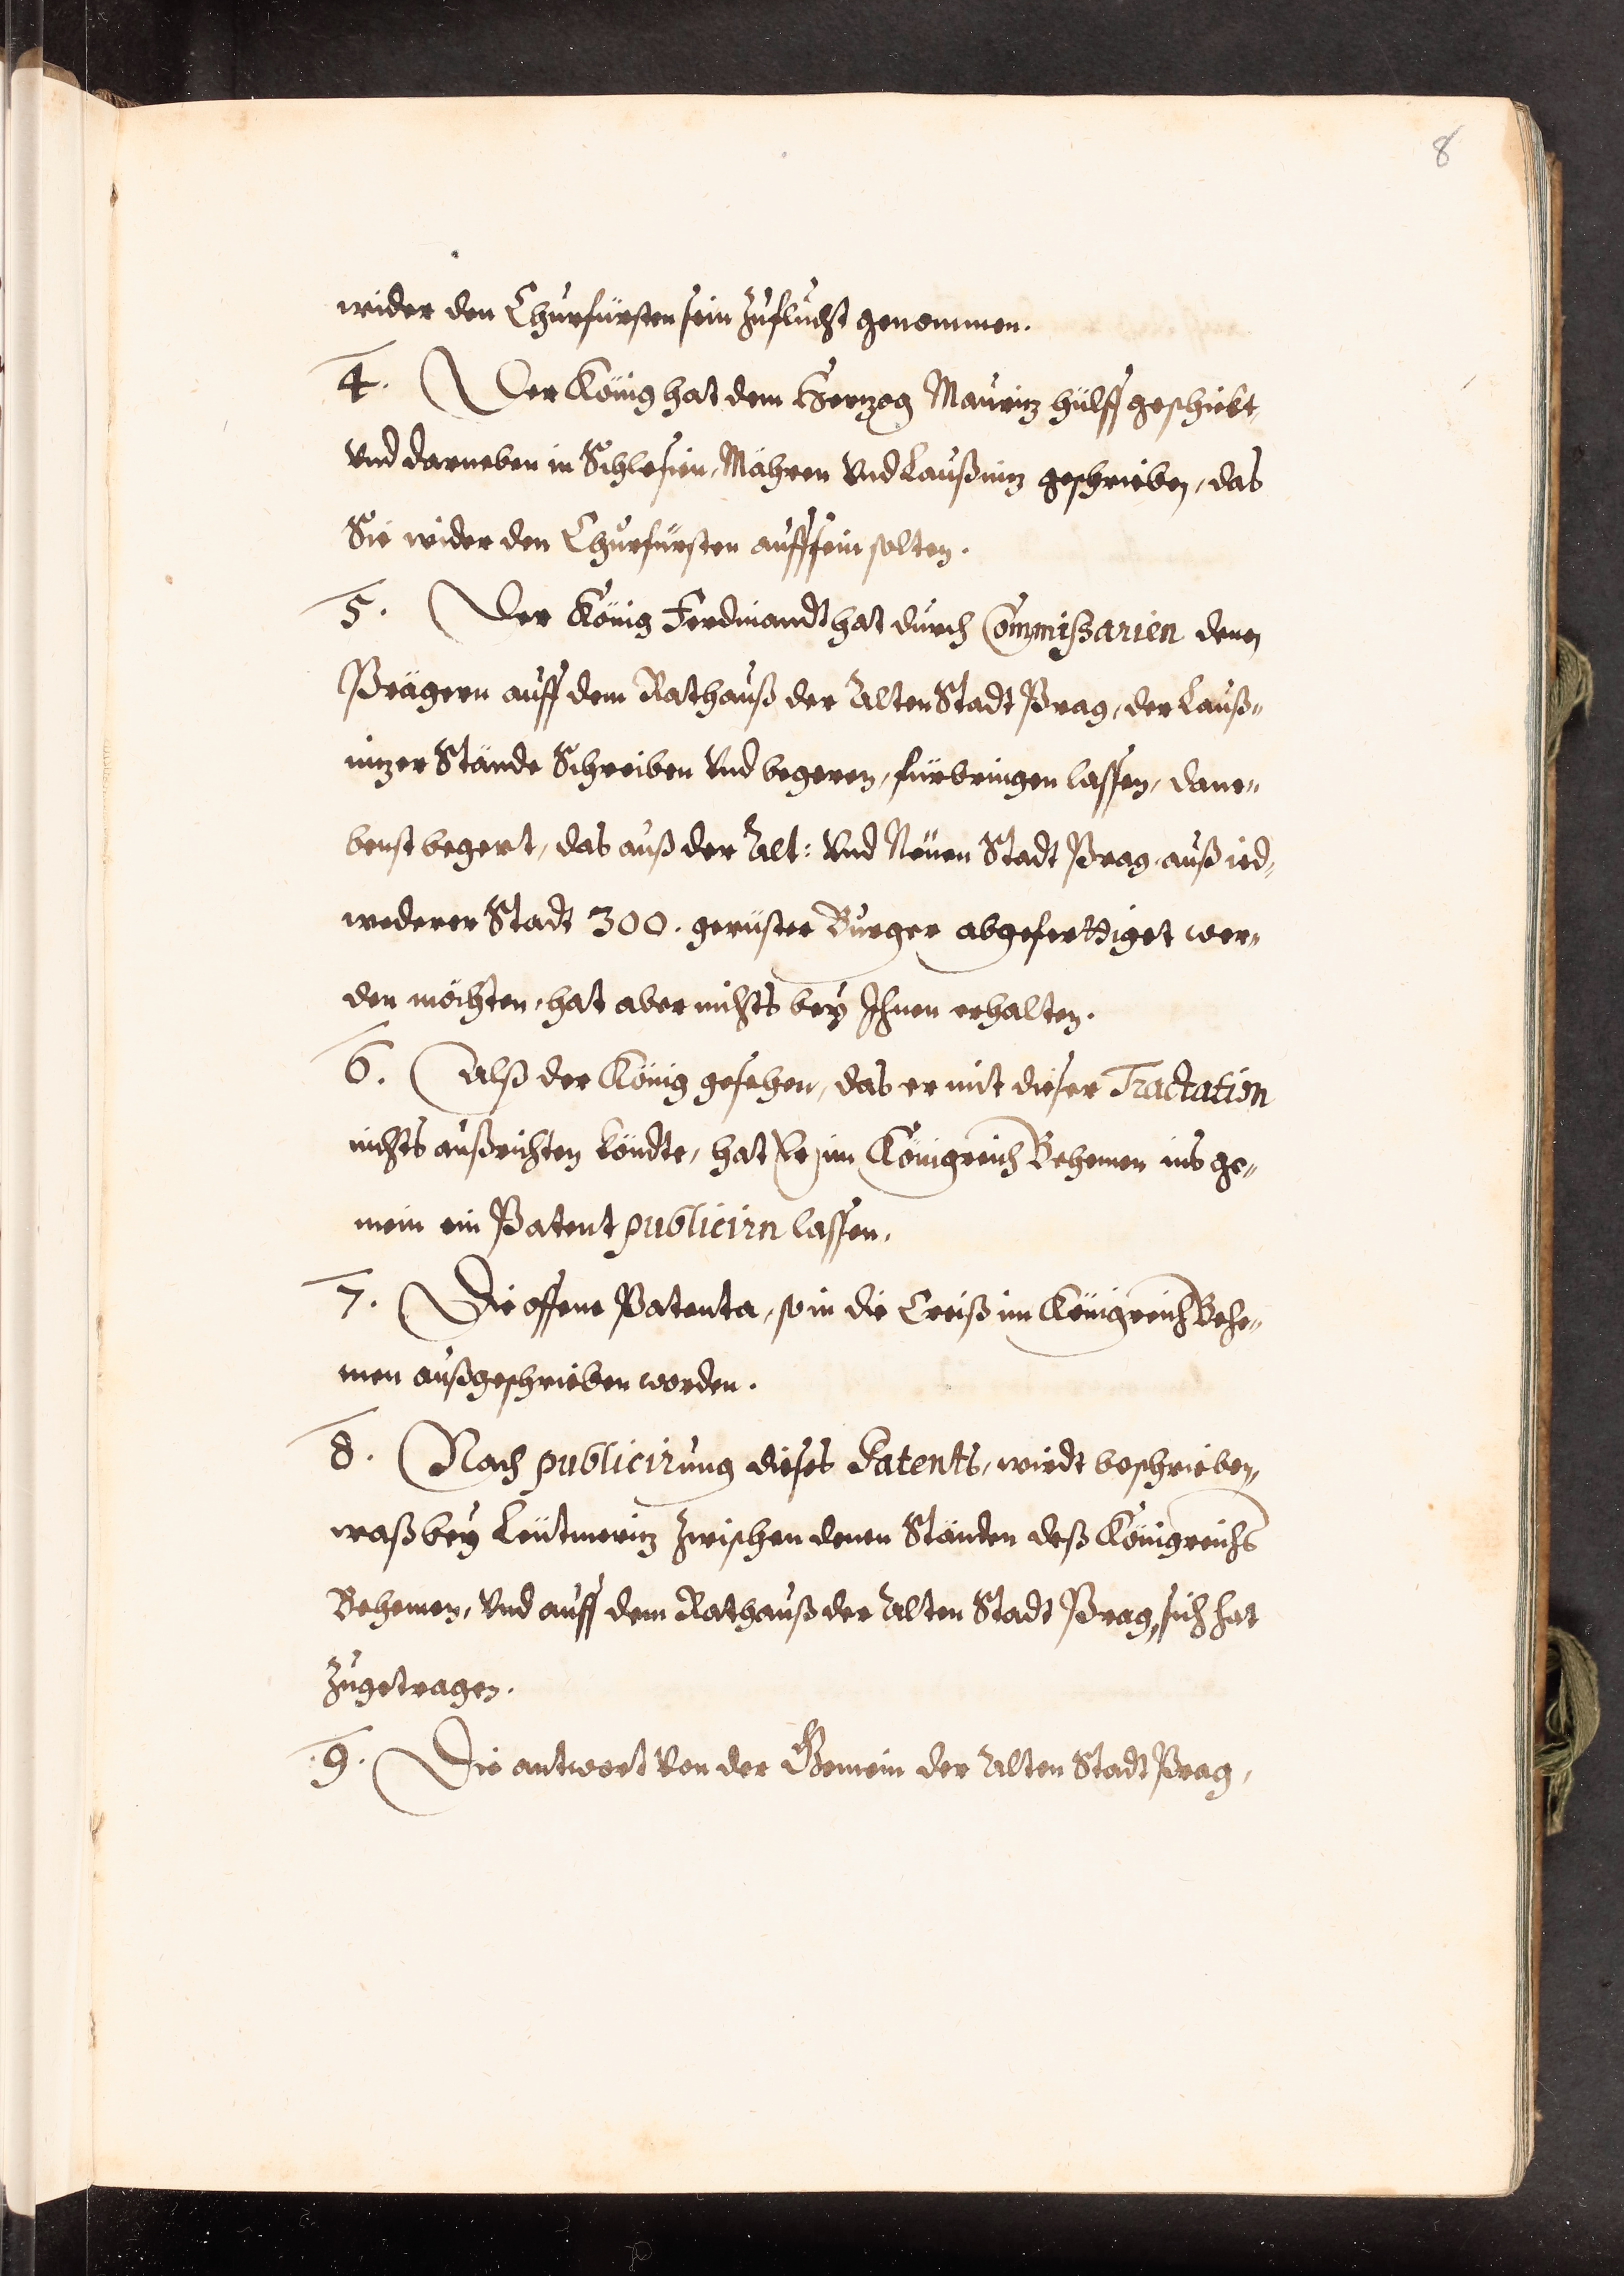 8
wider den Churfürsten sein Zuflucht genommen.
4. Der König hat dem Herzog Mauritz hülff geschickt,
vnd darneben in Schlesien, Mähren vnd Laußnitz geschrieben, das
Sie wider den Churfürsten auffsein solten.
5. Der König Ferdinandt hat durch Commißarien denen
Prägern auff dem Rathauß der Alten Stadt Prag, der Lauß„
nitzer Stände Schreiben vnd begeren, fürbringen lassen, dane„
benst begert, das auß der Alt: vnd Neüen Stadt Prag, auß ied„
wederer Stadt 300. gerüster Burger abgeferttiget wer„
den möchten, hat aber nichts bey Ihnen erhalten.
6. Alß der König gesehen, das er mit dieser Tractation
nichts außrichten köndte, hat Er im Königreich Behemen ins ge„
mein ein Patent publicirn lassen.
7. Die offene Patenta, so in die Creiß im Königreich Behe„
men außgeschrieben worden.
8. Nach publicirung dieses Patents, wirdt beschrieben,
waß bey Leütmeritz zwischen denen Ständen deß Königreichs
Behemen, vnd auff dem Rathauß der Alten Stadt Prag, sich hat
zugetragen.
9. Die antwort von der Gemein der Alten Stadt Prag,